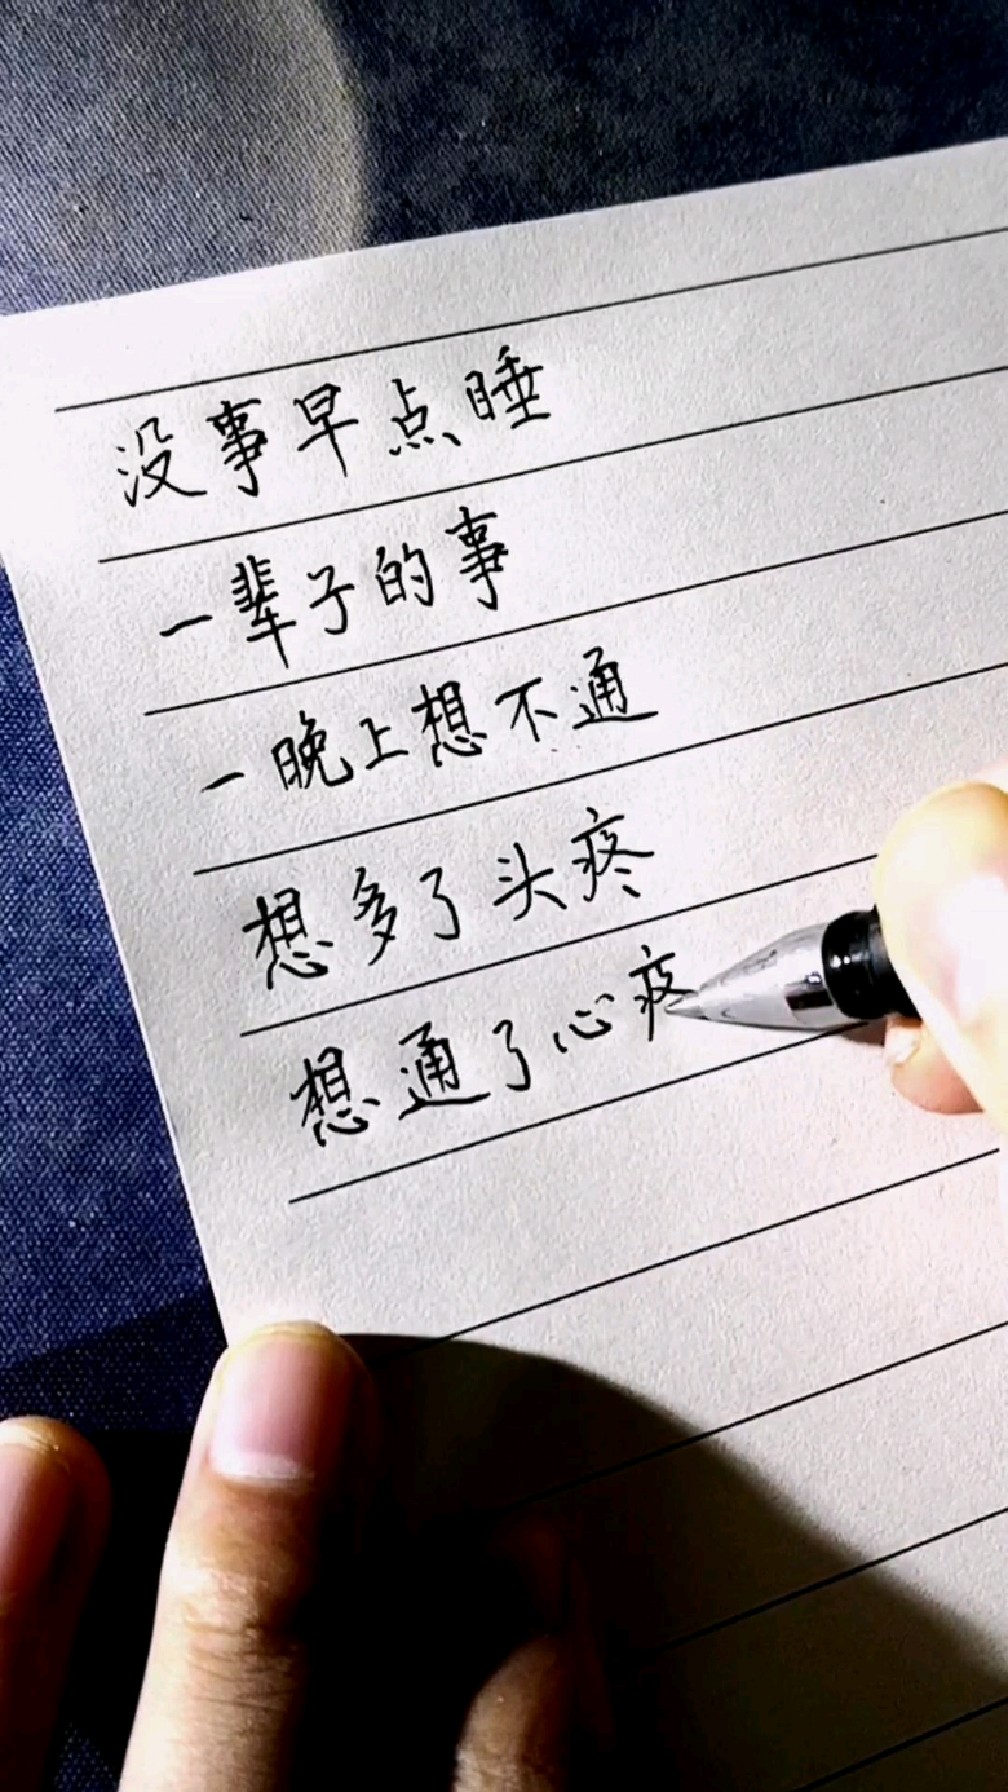 没事早点睡
一辈子的事
一晚上想不通
想多了头疼
想通了心